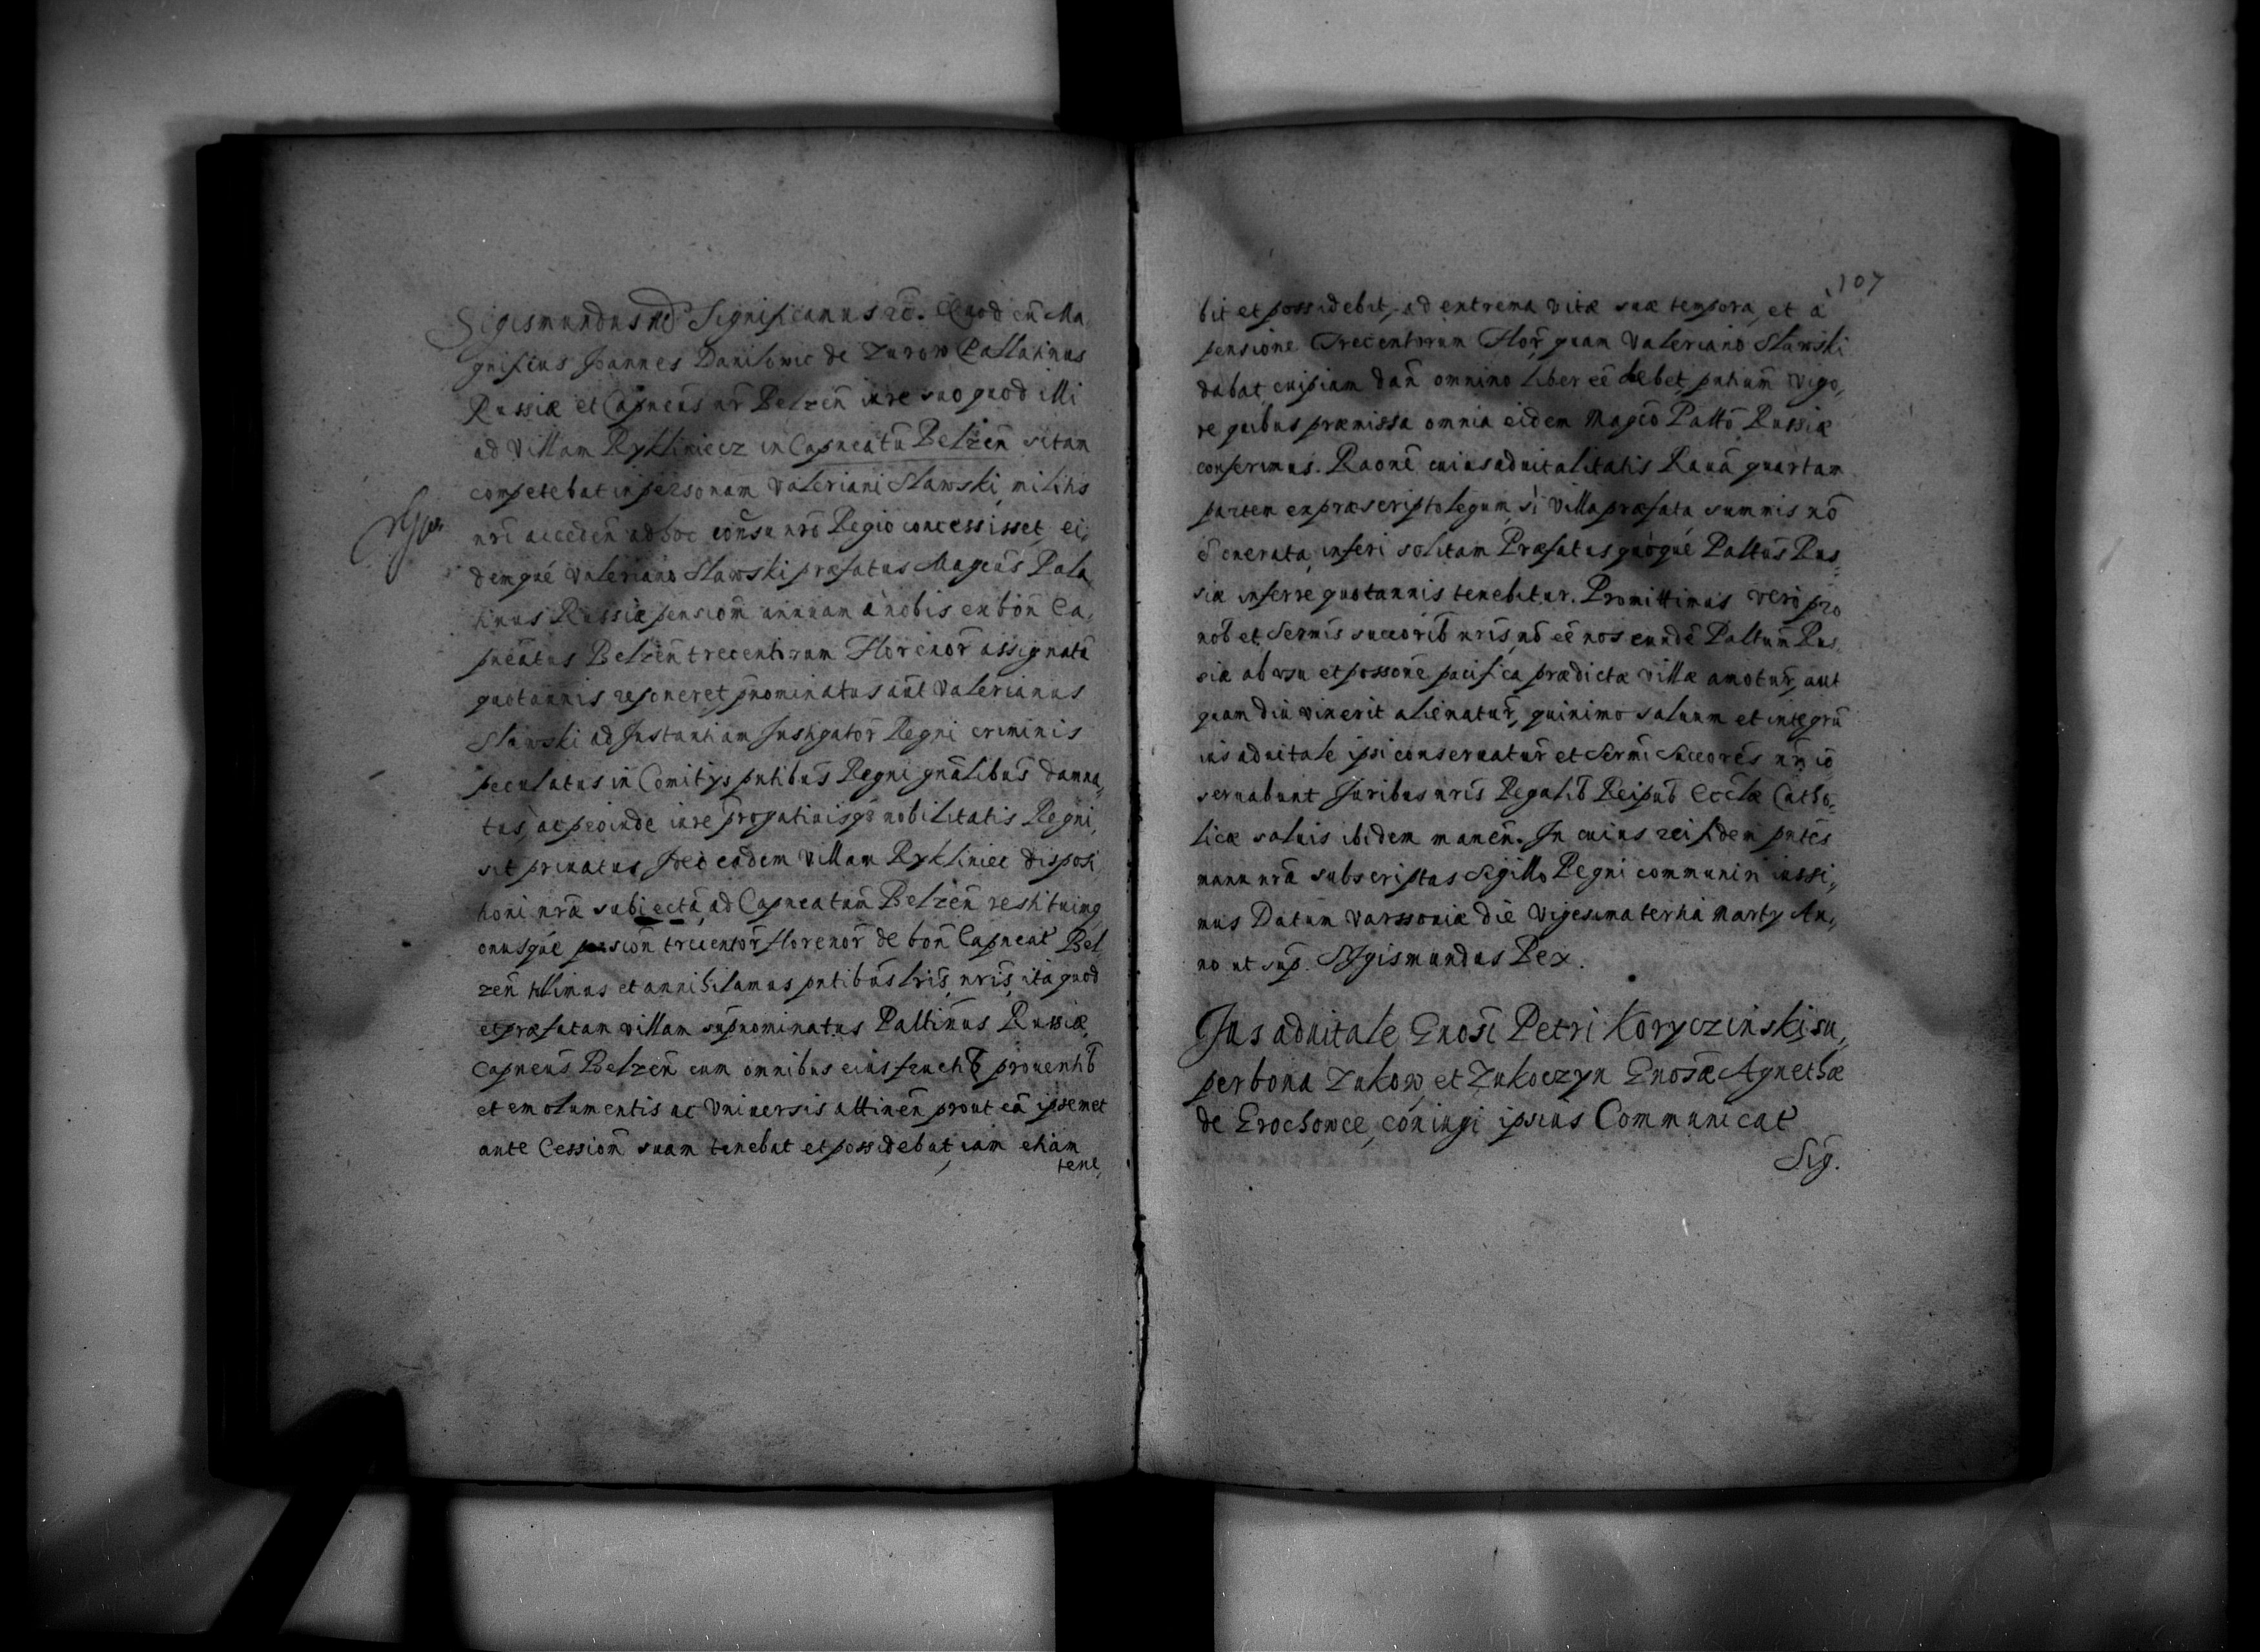 Sigismundus ꝛc̄ Significamus ꝛc̄. Quod cū Ma,
gnificus Joannes Danilowic de Zurow Pallatinus
Russiæ et Capneus nr̄ Belzen̄ iure suo quod illi
ad Villam Rykliniecz in Capneatū Belzen̄ sitam
competebat in personam Valeriani Slawski, militis
nr̄i acceden̄ ad hoc con̄su nr̄o Regio concessisset, ei,
demque Valeriano Slawski præfatus Magcūs Pala
tinus Russiæ pensiom̄ annuam à nobis ex bon̄ Ca,
pneatus Belzen̄ trecentorum Florenor̄ assignatā
quotannis resoneret, p̄nominatus aūt Valerianus
Slawski ad Instantiam Instigator̄ Regni criminis
peculatus in Comitijs pn̄tibus Regni gn̄alibus damna,
tus, ac proinde iure prrogatiuisqꝫ nobilitatis Regni,
sit priuatus Ideo eadem Villam Rykliniec disposi
tioni nr̄æ subiectā, ad Capneatum̄ Belzen̄ restituimꝰ
onusque pension̄ trecentor̄ florenor̄ de bon̄ Capneat Bel
zen̄ tollimus et annihilamus pn̄tibus lr̄is, nr̄is, ita quod
et præfatam villam sup̄nominatus Paltinus Russiæ,
Capneus Belzen̄ cum omnibus eius fructib̄ prouentib̄
et emolumentis ac Vniuersis attinen̄ prout eā ipsemet
ante Cessiom̄ suam tenebat et possidebat, iam etiam
tene,
107
bit et possidebit, ad extrema vitæ suæ tempora, et à
pensione Trecentorum Flor̄, quam Valeriano Slawski
dabat, cuipiam dan̄ omnino liber eē debet, pn̄tium̄ vigo,
re quibus præmissa omnia eidem Magco Palt̄o Russiæ
conferimus. Raone cuius aduitalitatis Rauā quartam
partem ex præscripto legum, si Villa præfata summis nō
ē onerata, inferi solitam Præfatus quoque Paltus Rus,
siæ inferre quotannis tenebitur. Promittimus vero pro
nob et Sermis succorib̄ nr̄is, nō eē nos eundē Paltum̄ Rus,
siæ ab vsu et possone pacifica prædictæ villæ amotur̄, aut
quam diu vixerit alienatur̄, quinimo saluum et integrū
ius aduitale ipsi conseruatur̄ et Sermi Succores nr̄i iō
seruabunt Juribus nr̄is Regalib̄ Reipub̄ Ecclæ Catho,
licæ saluis ibidem manen̄. In cuius rei fidem pn̄tes
manu nr̄a subscriptas Sigillo Regni communiri iussi,
mus Datum Varssouiæ die Vigesima tertia Martij An,
no ut sup̄. Sigismundus Rex.
Jus aduitale Gnosi Petri Koryczinski, su,
per bona Zukow, et Zukoczyn Gnosæ Agnethæ
de Grochowce, coniugi ipsius Communicat
Sig.